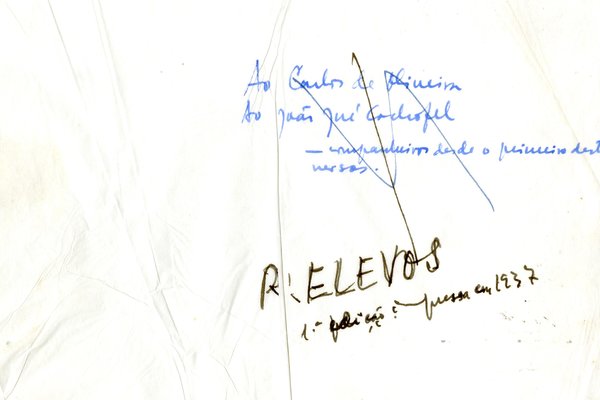 Ao Carlos de Oliveira
Ao João José Cochofel
— companheiros desde o primeiro dest
versos.
RELEVOS
1.ª edição: impressa em 1937